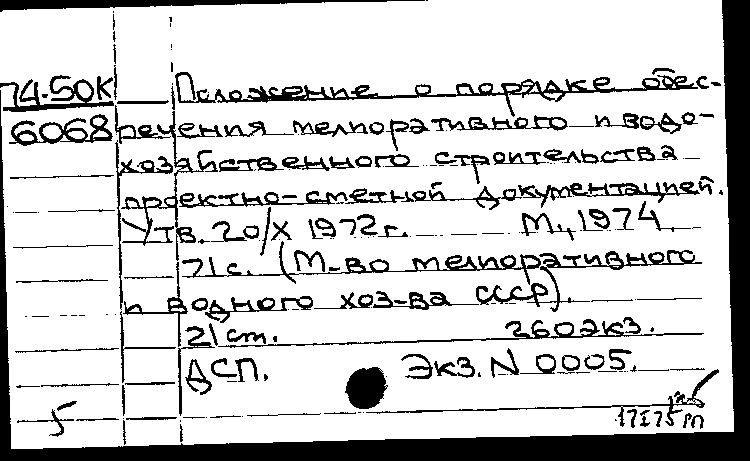 П4-50К Положение о порядке обес-
6068 печения мелиоративного и водо-
хозяйственного строительства
проектно-сметной документацией.
Утв. 20/X 1972г. М., 1974.
71с. (М-во мелиоративного
и водного хоз-ва СССР).
21 ст. 260экз.
ДСП. Экз. N 0005.
5 17I75